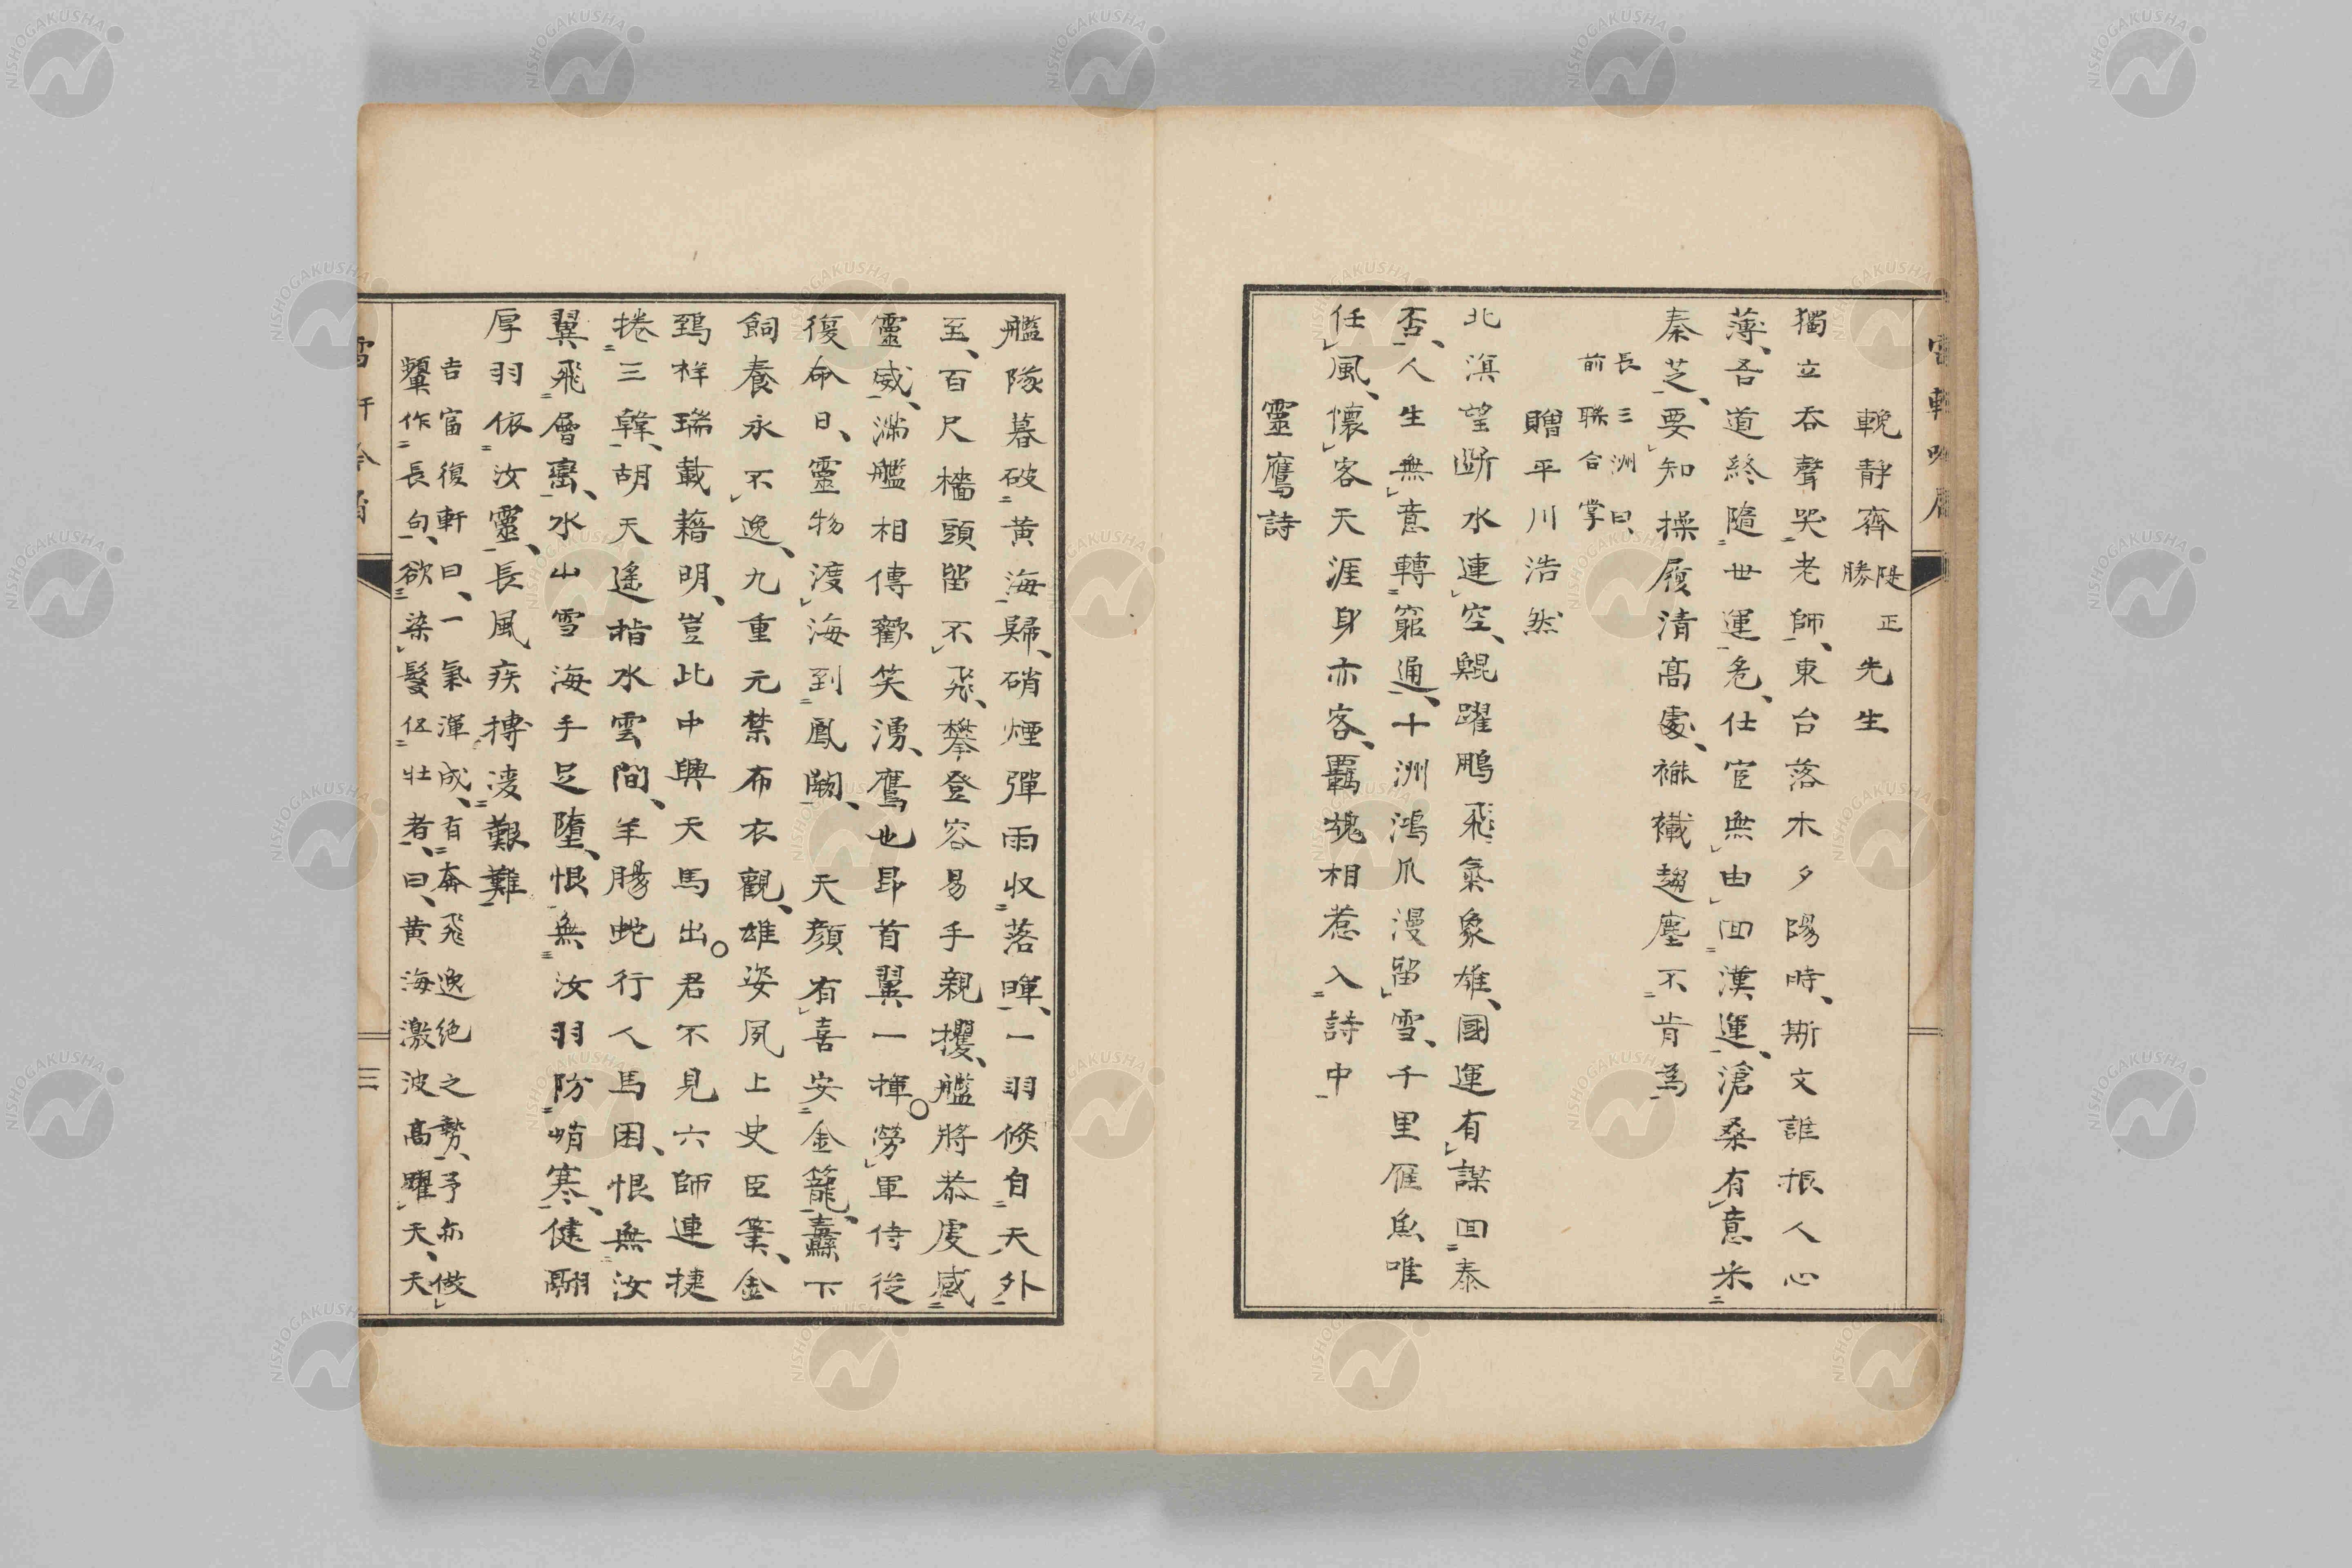 輓靜齊堤正勝先生
獨立吞聲哭老師、東台落木夕陽時、斯文誰振人心
薄、吾道終隨世運危、仕宦無由回漢運、滄桑有意米
秦芝、要知操履清高處、襤襳趨塵不肯為
長三洲曰、
前聯合掌
贈平川浩然
北溟望斷水連空、鯤躍鵬飛氣象雄、國運有謀回泰
否、人生無意轉窮通、十洲鴻爪漫留雪、千里雁魚唯
任風、懷客天涯身亦客、羈魂相惹入詩中
靈鷹詩
艦隊暮破黃海歸、硝煙彈雨収落暉、一羽倏自天外
至、百尺檣頭留不飛、攀登容易手親攫、艦將恭虔感
靈威、滿艦相傳歡笑湧、鷹也昂首翼一揮○勞軍侍從
復命日、靈物渡海到鳳闕、天顏有喜安金籠、纛下
飼養永不逸、九重元禁布衣觀、雄姿夙上史臣筆、金
鵄祥瑞載藉明、豈此中興天馬出○君不見六師連捷
捲三韓、胡天遙指水雲間、羊腸蛇行人馬困、恨無汝
翼飛層巒、氷山雪海手足墮、恨無汝羽防峭寒、健翮
厚羽依汝靈、長風疾搏凌艱難
吉富復軒曰、一氣渾成、有奔飛逸絕之勢、予亦倣
顰作長句、欲染髮伍壯者、曰、黃海激波高躍天、天
三